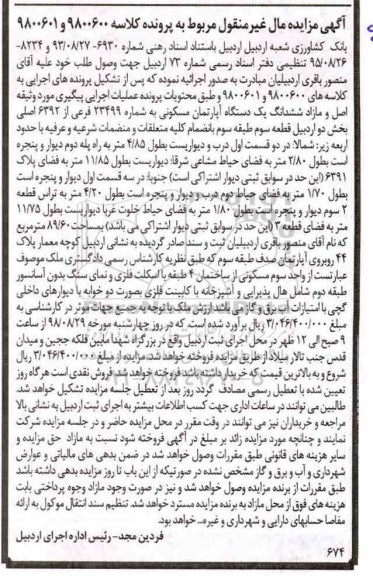 آگهی مزایده مال غیرمنقول مربوط به پرونده کلاسه ۹۸۰۰۶۰۰ و ۹۸۰۰۶۰۱
بانک کشاورزی شعبه اردبیل اردبیل باستناد اسناد رهنی شماره ۶۹۳۰-۹۳/۰۸/۲۷ و ۸۲۳۴-
۹۵/۰۸/۲۶ تنظیمی دفتر اسناد رسمی شماره ۷۳ اردبیل جهت وصول طلب خود علیه آقای
منصور باقری اردبیلیان مبادرت به صدور اجرائیه نموده که پس از تشکیل پرونده های اجرایی به
کلاسه های ۹۸۰۰۶۰۰ و ۹۸۰۰۶۰۱ و طبق محتویات پرونده عملیات اجرایی پیگیری مورد وثیقه
اصل و مازاد ششدانگ یک دستگاه آپارتمان مسکونی به شماره ۲۳۴۹۹ فرعی از ۶۳۹۲ اصلی
بخش دو اردبیل قطعه سوم طبقه سوم بانضمام کلیه متعلقات و منضمات شرعیه و عرفیه با حدود
اربعه زیر: شمالا: در دو قسمت اول درب و دیواریست بطول ۴/۸۵ متر به راه پله دوم دیوار و پنجره
است بطول ۲/۸۰ متر به فضای حیاط مشاعی شرقا: دیواریست بطول ۱۱/۸۵ متر به فضای پلاک
۶۳۹۱ (این حد در سوابق ثبتی دیوار اشتراکی است) جنوبا: در سه قسمت اول دیوار و پنجره است
بطول ۱/۷۰ متر به فضای حیاط دوم درب و دیوار و پنجره است بطول ۴/۲۰ متر به تراس قطعه
۲ سوم دیوار و پنجره است بطول ۱/۸۰ متر به فضای حیاط خلوت غربا دیواریست بطول ۱۱/۷۵
متر به فضای قطعه ۳ (این حد در سوابق ثبتی دیوار اشتراکی می باشد) بمساحت ۸۹/۶۰ مترمربع
که نام آقای منصور باقری اردبیلیان ثبت و سند صادر گردیده به نشانی اردبیل کوچه معمار پلاک
۴۴ روبروی آپارتمان صدف طبقه سوم که طبق نظریه کارشناس رسمی دادگستری ملک موصوف
عبارتست از واحد سوم مسکونی از ساختمان ۴ طبقه با اسکلت فلزی و نمای سنگ بدون آسانسور
طبقه دوم شامل هال پذیرایی و آشپزخانه با کابینت فلزی بصورت دو خوابه با دیوارهای داخلی
گچی با امتیازات آب برق و گاز می باشد ارزش ملک با توجه به جمیع جهات موثر در کارشناسی به
مبلغ ۳/۰۴۶/۴۰۰/۰۰۰ ریال برآورد شده است. که در روز چهارشنبه مورخه ۹۸/۰۸/۲۹ از ساعت
۹ صبح الی ۱۲ ظهر در محل اجرای ثبت اردبیل واقع در بزرگراه شهدا مابین فلکه ججین و میدان
قدس جنب تالار میلاد از طریق مزایده فروخته خواهد شد. مزایده از مبلغ ۳/۰۴۶/۴۰۰/۰۰۰ ریال
شروع و به بالاترین قیمت که خریدار داشته باشد فروخته خواهد شد فروش نقدی است هر گاه روز
تعیین شده با تعطیل رسمی مصادف گردد روز بعد از تعطیل جلسه مزایده تشکیل خواهد شد.
طالبین می توانند در ساعات اداری جهت کسب اطلاعات بیشتر به اجرای ثبت اردبیل به نشانی بالا
مراجعه و خریداران نیز می توانند در وقت مقرر در محل مزایده حاضر و در جلسه مزایده شرکت
نمایند و چنانچه مورد مزایده زائد بر مبلغ در آگهی فروخته شود نسبت به مازاد حق مزایده و
سایر هزینه های قانونی طبق مقررات وصول خواهد شد در ضمن بدهی های مالیاتی و عوارض
شهرداری و آب و برق و گاز مشخص نشده در صورتیکه از این باب تا روز مزایده بدهی داشته باشد
طبق مقررات از برنده مزایده وصول خواهد شد و نیز در صورت وجود مازاد وجوه پرداختی بابت
هزینه های فوق از محل مازاد به برنده مزایده مسترد خواهد شد. تنظیم سند انتقال موکول به ارائه
مفاصا حسابهای دارایی و شهرداری و غیره... خواهد بود.
فردین مجد- رئیس اداره اجرای اردبیل
۶۷۴